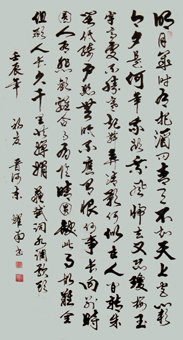 明月幾時有把酒問青天不知天上宮闕
今夕是何年我欲乘風歸去又恐瓊樓玉
宇高處不勝寒起舞弄清影何似在人間轉朱
閣低綺戶照無眠不應有恨何事長向別時
圓人有悲歡離合月有陰晴圓缺此事古難全
但願人長久千里共嬋娟 蘇軾詞水調歌頭
壬辰年